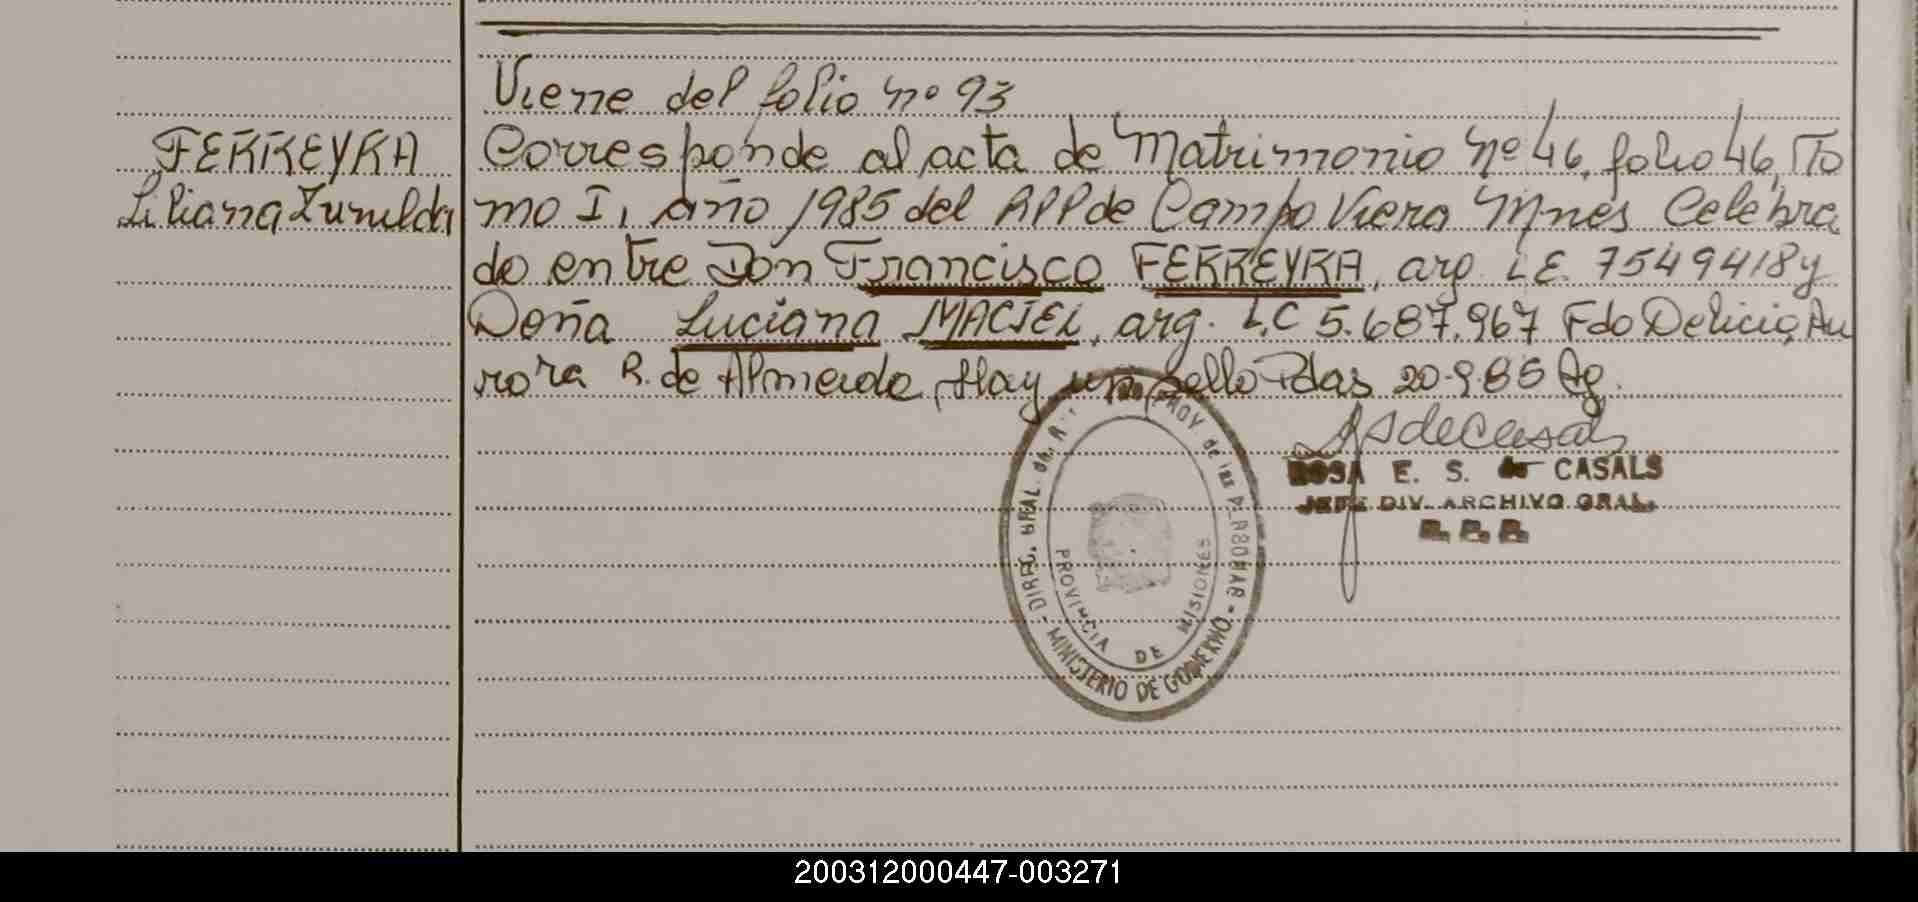 Viene del folio nº 93
FERREYRA
Liliana Zunilda
Corresponde al acta de Matrimonio nº 46, folio 46, To
mo I, año 1985 del RPP de Campo Viera Mnes Celebra
do entre Don Francisco FERREYRA, arg. L.E. 7549418 y
Doña Luciana MACIEL, arg. L.C 5.687.967 Fdo Delicia Au
rora R. de Almeida, Hay un sello Pdas 20-9-85
ROSA E. S. de CASALS
JEFE DIV. ARCHIVO GRAL.
DIREC. GRAL. PROV de las PERSONAS - MINISTERIO DE GOBIERNO -
PROVINCIA DE MISIONES
200312000447-003271